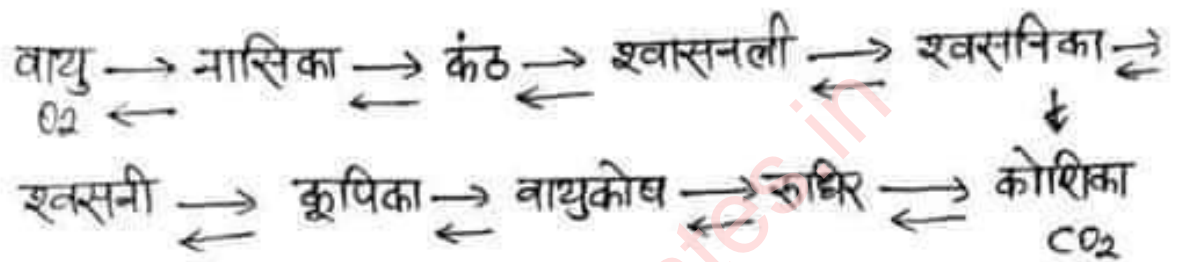 वायु → नासिका → कंठ → श्वासनली → श्वसनिका →
O2
श्वसनी → कूपिका → वायुकोष → रुधिर → कोशिका
CO2